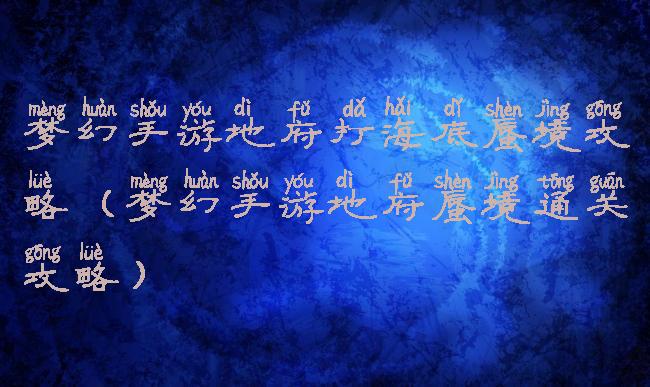 mèng huàn shǒu yóu dì fǔ dǎ hǎi dǐ shèn jìng gōng
梦幻手游地府打海底蜃境攻
lüè mèng huàn shǒu yóu dì fǔ shèn jìng tōng guān
略（梦幻手游地府蜃境通关
gōng lüè
攻略）